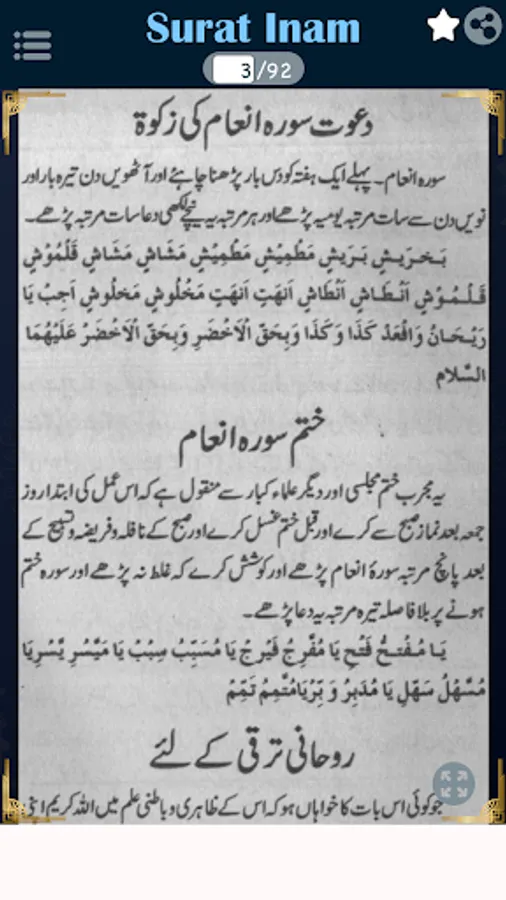 Surat Inam
3/92
دعوت سورہ انعام کی زکوۃ
سورہ انعام۔ پہلے ایک ہفتہ کو دس بار پڑھنا چاہئے اور آٹھویں دن تیرہ بار اور
نویں دن سے سات مرتبہ یومیہ پڑھے اور ہر مرتبہ یہ نیچے لکھی دعا سات مرتبہ پڑھے۔
بَخرِیشٍ بَرِیشٍ مَطْمِیْشٍ مَطْمِیْشٍ مَشَاشٍ مَشَاشٍ قَلْمُوْشٍ
قَلْمُوْشٍ اَنْطَاشٍ اَنْطَاشٍ اَنَهَتٍ اَنَهَتٍ مَخْلُوشٍ مَخلُوشٍ اَجِبْ یَا
رَیْحَانُ وَافْعَدْ کَذَا وَکَذَا وَبِحَقِّ الْاَحُضَرِ وَبِحَقِّ الْاَخُضَرْ عَلَیْهُمَا
السَّلام
ختم سورہ انعام
یہ مجرب ختم مجلسی اور دیگر علماء کبار سے منقول ہے کہ اس عمل کی ابتدا روز
جمعہ بعد نماز صبح سے کرے اور قبل ختم غسل کرے اور صبح کے نافلہ و فریضہ و تسبیح کے
بعد پانچ مرتبہ سورۂ انعام پڑھے اور کوشش کرے کہ غلط نہ پڑھے اور سورہ ختم
ہونے پر بلا فاصلہ تیرہ مرتبہ یہ دعا پڑھے۔
یَا مُفْتِحُ فَتْحِ یَا مُفَّرِجُ فَیْرجُ یَا مُسَبِّبُ سِبْبُ یَا مَیَّسْرِ یَّسْرِیَا
مُسَّهْلُ سَهِّلِ یَا مُدَبِّرُ وَ بِّرُیَامُتَّمِمُ تَمِّمْ
روحانی ترقی کے لئے
جو کوئی اس بات کا خواہاں ہو کہ اس کے ظاہری و باطنی علم میں اللہ کریم اپنی